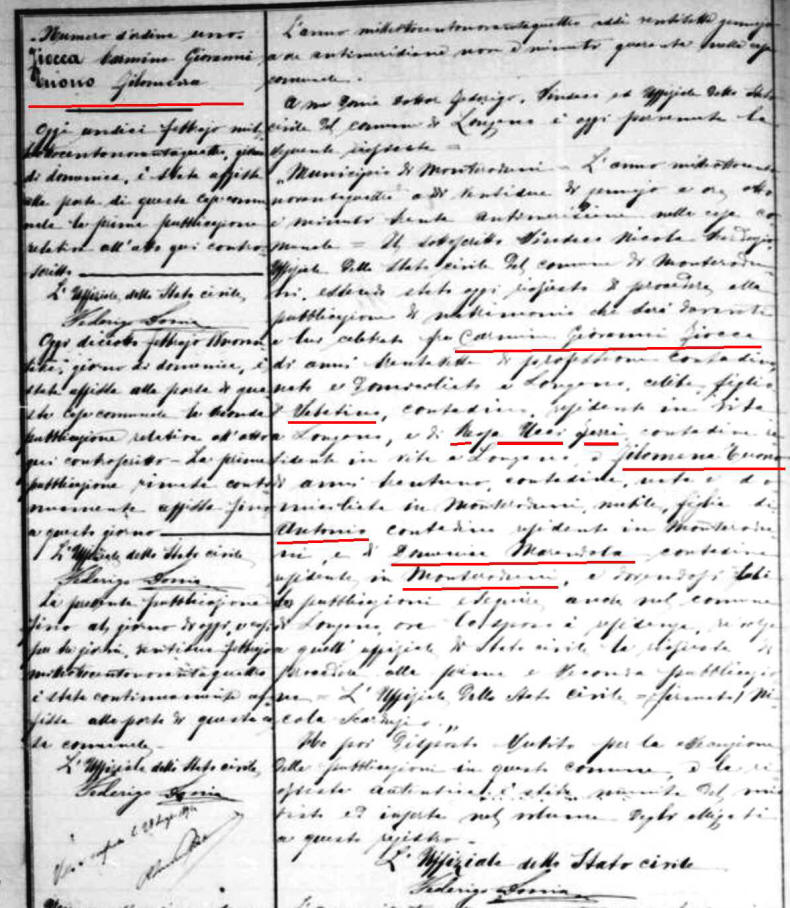 Numero d'ordine uno.
Fiocca Carmine Giovanni
Tuono Filomena
Oggi undici febbrajo mil-
ottocentonovantaquattro, giorno
di domenica, è stata affissa
alla porta di questa casa comu-
nale la prima pubblicazione
relativa all'atto qui contro-
scritto
L'Uffiziale dello Stato civile
Federigo Donia
Oggi diciotto febbrajo
giorno di domenica, è
stata affissa alla porta di que-
sta casa comunale la seconda
pubblicazione relativa all'atto
qui controscritto - La prima
pubblicazione rimasta conti-
nuamente affissa fino
a questo giorno
L'Uffiziale dello Stato civile
Federigo Donia
La presente pubblicazione
fino al giorno di oggi,
tre giorni, ventuno febbrajo
milleottocentonovantaquattro
è stata continuamente af-
fissa alla porta di questa ca-
sa comunale
L'Uffiziale dello Stato civile
Federigo Donia
L'anno milleottocentonovantaquattro addì ventisette gennajo
a ore antimeridiane nove e minuti quaranta nella casa
comunale.
A me Donia dottor Federigo, Sindaco ed Uffiziale dello Stato
civile del comune di Longano è oggi pervenuta la
seguente richiesta =
"Municipio di Monteroduni - L'anno milleottocento
novantaquattro a dì ventidue di gennajo a ore otto
e minuti trenta antimeridiane nella casa co
munale = Il sottoscritto Sindaco Nicola
Uffiziale dello Stato civile del comune di Monterodu
ni, essendo stato oggi richiesto di procedere alla
pubblicazione di matrimonio che sarà davanti
a lui celebrato fra Carmine Giovanni Fiocca
di anni trentasette di professione contadino
nato e domiciliato a Longano, celibe, figlio
di Sabatino, contadino, residente in vita
a Longano, e di Rosa Ucci Ferri contadina re
sidente in vita a Longano, e Filomena Tuono
di anni trentuno, contadina, nata e do
miciliata in Monteroduni, nubile, figlia di
Antonio contadino residente in Monterodu
ni, e di Domenica Marandola contadina
residente in Monteroduni, e dovendosi tali
pubblicazioni eseguire anche nel comune
di Longano, ove lo sposo è residenza, se volge
a quell'uffiziale di Stato civile la richiesta di
procedere alla prima e seconda pubblicazio
ne = L'Uffiziale dello Stato civile = firmato Ni
cola
Ho poi disposto subito per la esecuzione
delle pubblicazioni in questo comune, e la ri
chiesta autentica è stata munita del mio
visto ed inserta nel volume degli allegati
a questo registro.
L'Uffiziale dello Stato civile
Federigo Donia